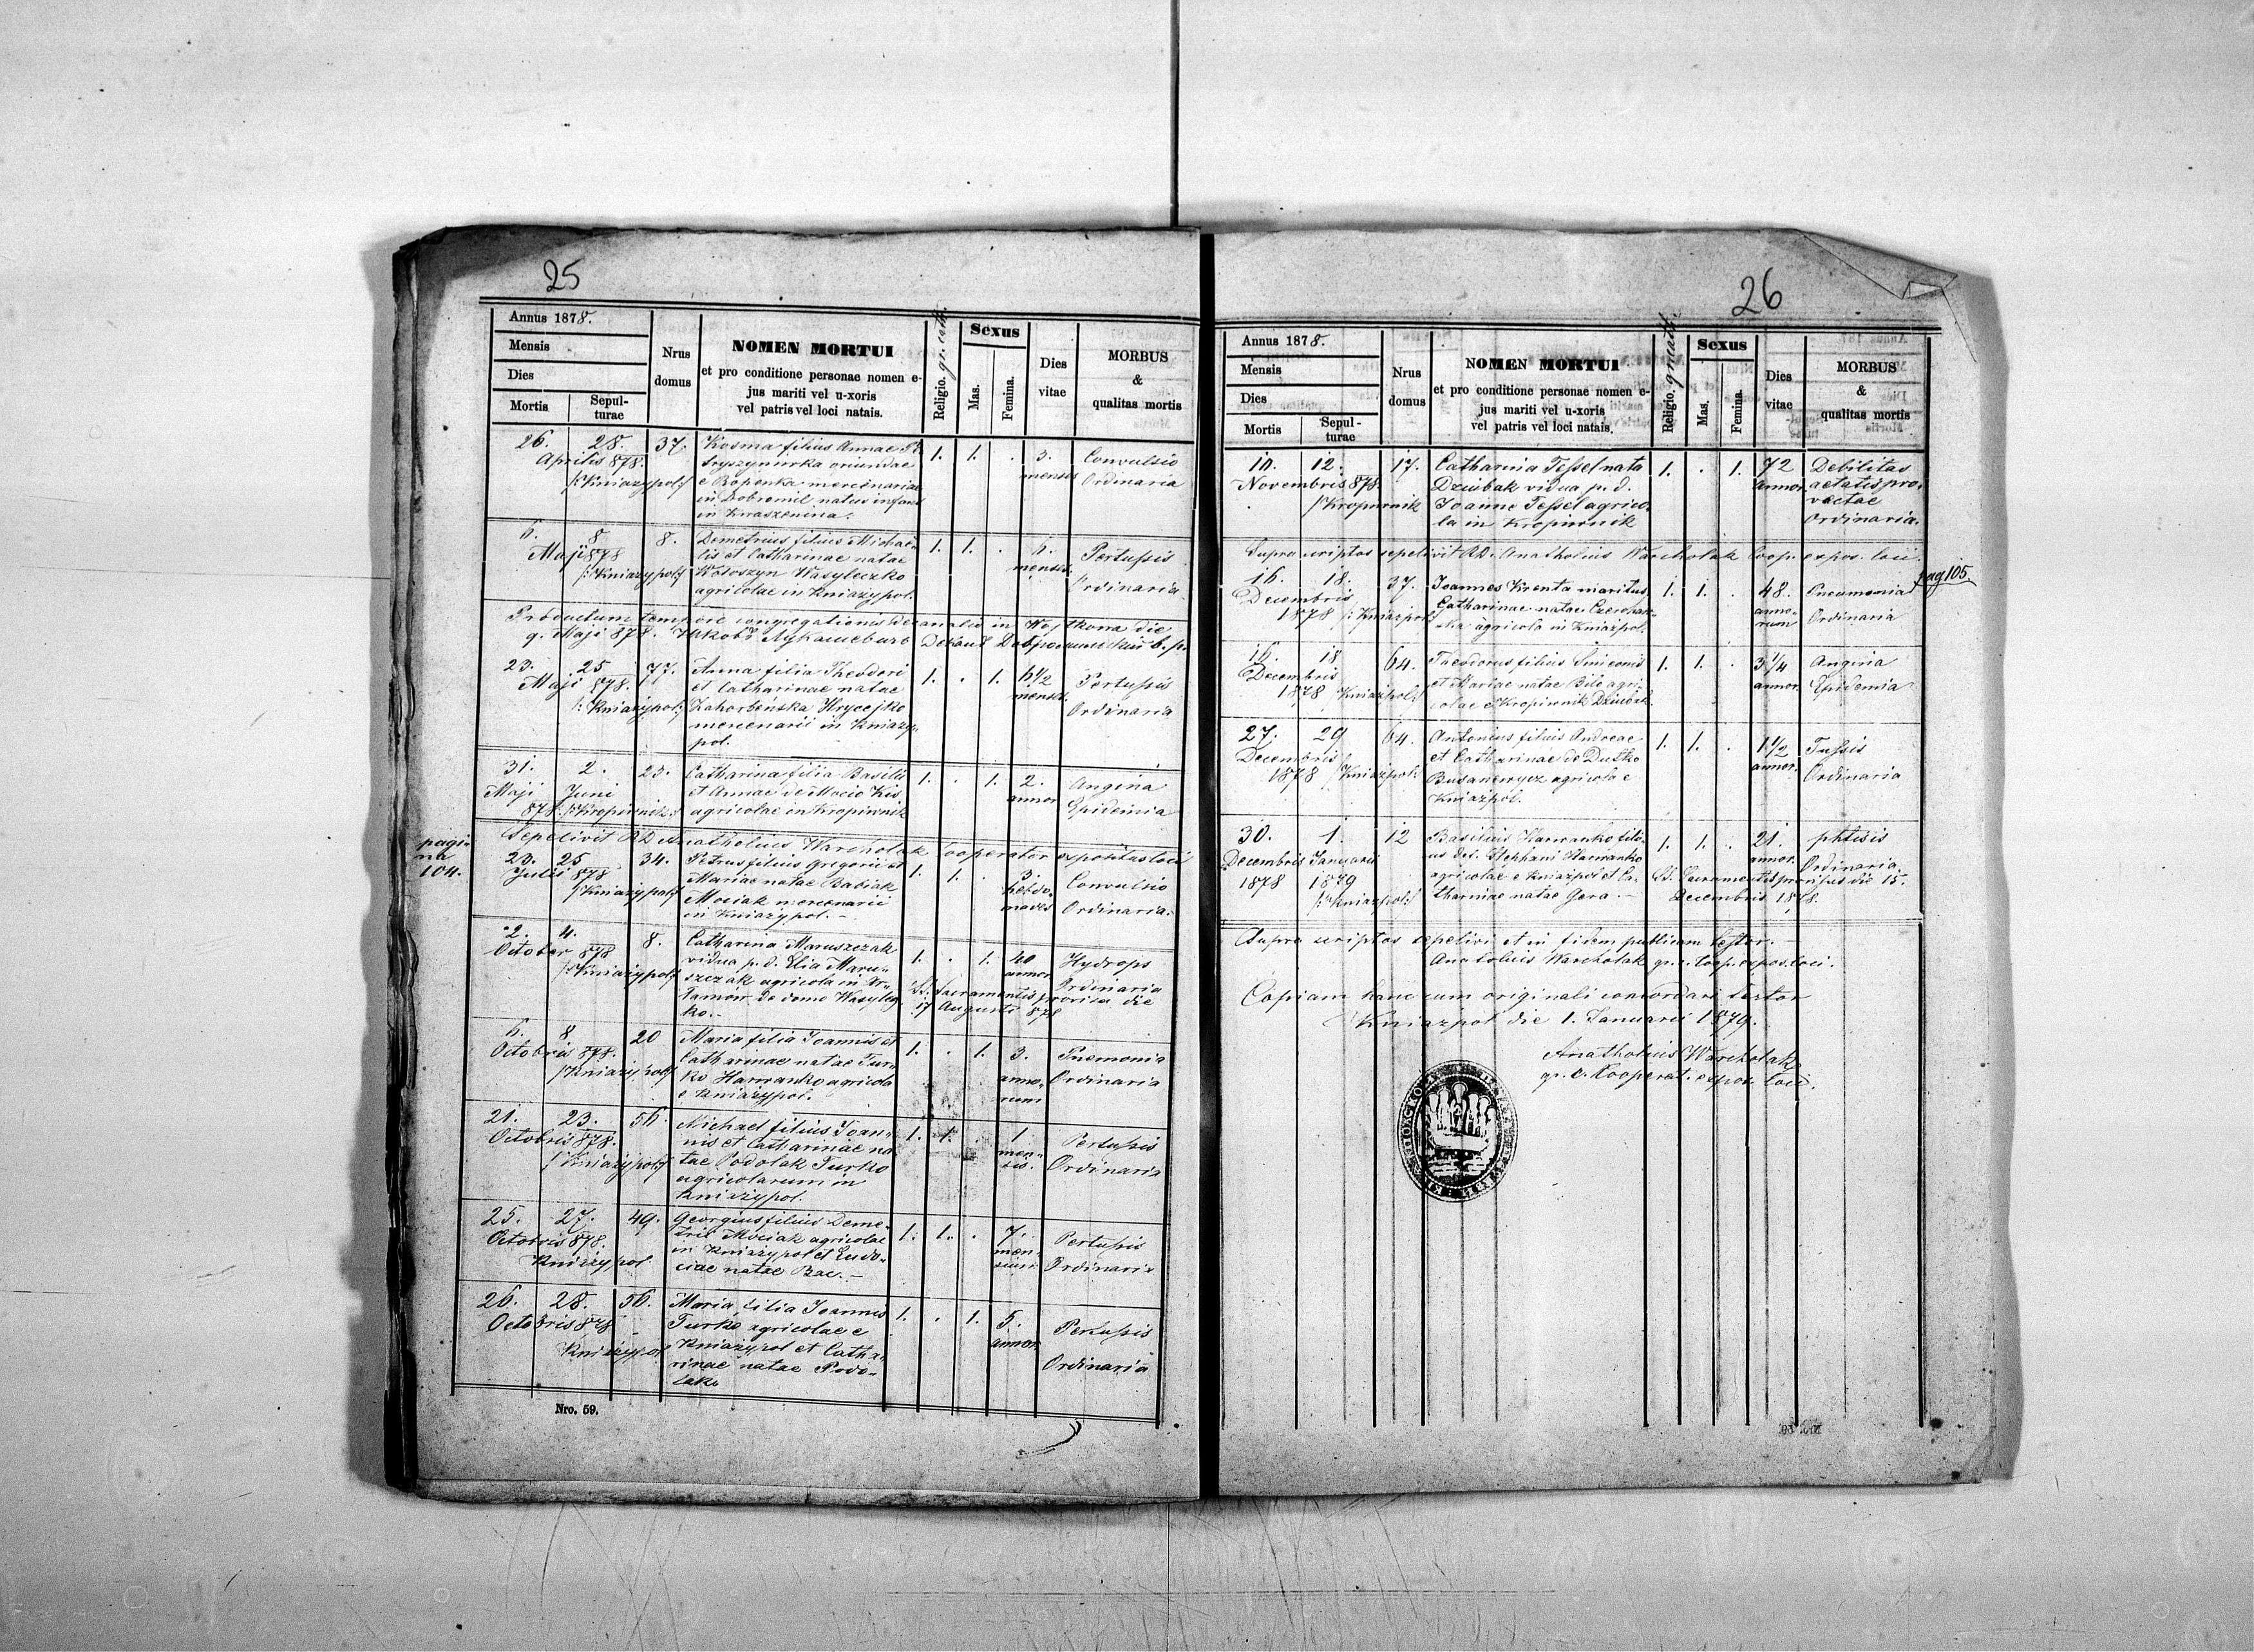 25
Annus 1878.
Mensis
Dies
Mortis
Sepul-
turae
Nrus
domus
NOMEN MORTUI
et pro conditione personae nomen e-
jus mariti vel u-xoris
vel patris vel loci natais.
Religio. gr. cath.
Sexus
Mas.
Femina.
Dies
vitae
MORBUS
&
qualitas mortis
26. 28. 37. Kosma filius Annae
Aprilis 878.
/:Kniazypol:/
oriundae
mercenariae
in Dobromil natus infans
in Kwaszenina.
1. 1. . 3.
menses
Convulsio
Ordinaria
6. 8 8. Demetrius filius Michae-
Maji 878
/:Kniazypol:/
lis et Catharinae natae
Wołoszyn Wasyleczko
agricolae in Kniazypol.
1. 1. . 6.
menses.
Pertussis
Ordinaria
Productum tempore congregationis decanalis in Wojtkowa die
9. Maji 878.
23. 25 77. Anna filia Theodori
Maji 878.
/:Kniazypol:/
et Catharinae natae
Zahorbenska Hrycejko
mercenarii in Kniazy-
pol.
1. . 1. 6 1/2
menses.
Pertussis
Ordinaria
31. 2. 23. Catharina filia Basilii
Maji Juni
878. /:Kropiwnik:/
et Annae de Mocio Kis
agricolae in Kropiwnik
1. . 1. 2.
annor.
Angina
Epidemia
Sepelivit RD Anatholius Warcholak Cooperator expositus loci
pagi-
na
104.
23. 25 34. Petrus filius Gregorii et
Julii 878
/:Kniazypol:/
Mariae natae Babiak
Mociak mercenarii
in Kniazypol. -
1. 1. . 3.
hebdo-
mades
Convulsio
Ordinaria.
2. 4. 8. Catharina Maruszczak
October 878
/:Kniazypol:/
vidua p. d. Elia Maru-
szczak agricola in
de domo Wasylecz-
ko. -
1. . 1. 40
annor.
Hydrops
Ordinaria
SS. Sacramentis provisa die
17 Augusti 878
6. 8 20 Maria filia Joannis et
Octobris 878.
/:Kniazypol:/
Catharinae natae Tur-
ko Harwanko agricola
e Kniazypol.
1. . 1. 3.
anno-
rum
Pnemonia
Ordinaria
21. 23. 56 Michael filius Joan-
Octobris 878.
/:Kniazypol:/
nis et Catharinae na-
tae Podolak Turko
agricolarum in
Kniazypol.
1. 1. . 1
men-
sis.
Pertussis
Ordinaria
25. 27. 49. Georgius filius Deme-
Octobris 878.
Kniazypol
trii Mociak agricolae
in Kniazypol et Eudo-
ciae natae Bac. -
1. 1. . 7.
men-
sium
Pertussis
Ordinaria
26. 28. 56. Maria filia Joannis
Octobris 878
Kniazypol
Turko agricolae e
Kniazypol et Catha-
rinae natae Podo-
lak.
1. . 1. 5.
annor.
Pertussis
Ordinaria
Nro. 59.
26
Annus 1878.
Mensis
Dies
Mortis
Sepul-
turae
Nrus
domus
NOMEN MORTUI
et pro conditione personae nomen e-
jus mariti vel u-xoris
vel patris vel loci natais.
Religio. gr. cath.
Sexus
Mas.
Femina.
Dies
vitae
MORBUS
&
qualitas mortis
10. 12. 17. Catharina Tessel nata
Novembris 878
/:Kropiwnik
Dziubak vidua p. d.
Joanne Tessel agrico-
la in Kropiwnik
1. . 1. 72
annor.
Debilitas
aetatis pro-
vectae
Ordinaria.
Supra scriptos sepelivit RD. Anatholius Warcholak Coop. expos. loci
pag 105.
16. 18. 37. Joannes Krenta maritus
Decembris
1878 /:Kniazpol:/
Catharinae natae
agricola in Kniazpol.
1. 1. . 48.
anno-
rum
Pneumonia
Ordinaria
16. 18. 64. Theodorus filius Simeonis
Decembris
1878 /Kniazpol:/
et Mariae natae Bilo agri-
colae e Kropiwnik Dziubak.
1. 1. . 3 1/4
annor.
Angina
Epidemia
27. 29 64. Antonius filius Andreae
Decembris
1878 /Kniazpol:/
et Catharinae de Dutko
Busanewycz agricolae e
Kniazpol.
1. 1. . 1 1/2
annor.
Tussis
Ordinaria
30. 1. 12 Basilius Harwanko fili-
Decembris Januarii
1878 1879
/:Kniazpol:/
us def. Stephani Harwanko
agricolae e Kniazpol et Ca-
tharinae natae Gera. -
1. 1. . 21.
annor.
phtisis
Ordinaria
SS. Sacramentis provisus die 15.
Decembris 1878.
Supra scriptos sepelivi et in fidem publicam testor. -
Anatolius Warcholak gr. c. Coop. expos. loci.
Copiam hanc cum originali concordari testor
Kniazpol die 1. Januarii 1879.
Anatholius Warcholak
gr. c. Cooperat. expos. loci.